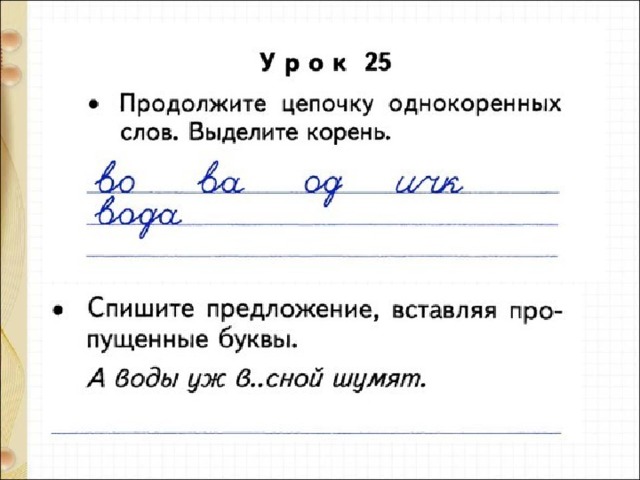 Урок 25
• Продолжите цепочку однокоренных
слов. Выделите корень.
во ва од ичк
вода
• Спишите предложение, вставляя про-
пущенные буквы.
А воды уж в..сной шумят.